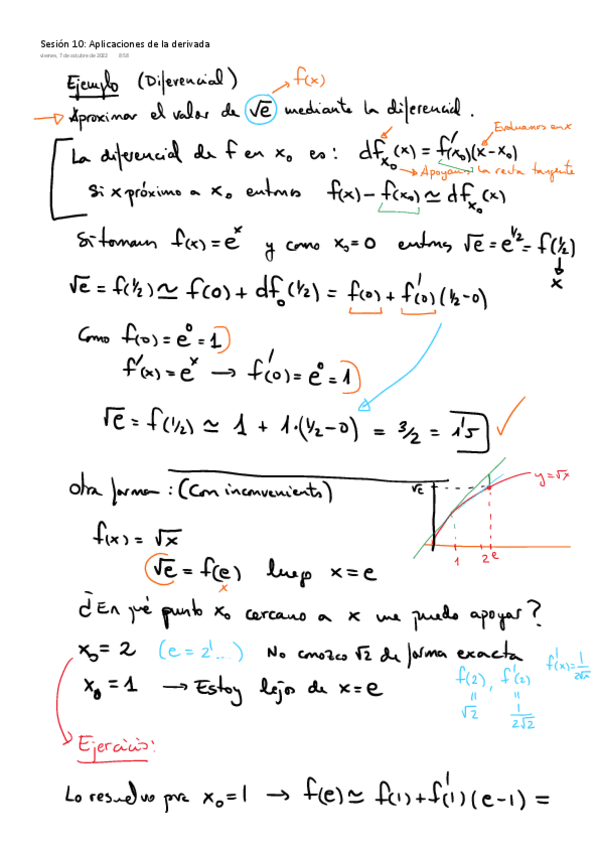 Sesión 10: Aplicaciones de la derivada
viernes, 7 de octubre de 2022 8:58
Ejemplo (Diferencial) f(x)
→ Aproximar el valor de √e mediante la diferencial.
Evaluamos en x
La diferencial de f en x₀ es: df_{x₀}(x) = f'(x₀)(x-x₀)
→ Apoyamos la recta tangente
Si x próximo a x₀ entonces f(x) - f(x₀) ≃ df_{x₀}(x)
Si tomamos f(x) = eˣ y como x₀=0 entonces √e = e^{1/2} = f(1/2)
x
√e = f(1/2) ≃ f(0) + df₀(1/2) = f(0) + f'(0)(1/2-0)
Como f(0) = e⁰ = 1
f'(x) = eˣ → f'(0) = e⁰ = 1
√e = f(1/2) ≃ 1 + 1·(1/2-0) = 3/2 = 1'5
Otra forma: (Con inconveniente)
√e y=√x
1 2 e
f(x) = √x
√e = f(e) luego x = e
x
¿En qué punto x₀ cercano a x me puedo apoyar?
x₀ = 2 (e = 2'...) No conozco √2 de forma exacta
f(2), f'(2) f'(x) = 1/2√x
x₀ = 1 → Estoy lejos de x = e
= =
√2 1/2√2
Ejercicio:
Lo resuelvo para x₀=1 → f(e) ≃ f(1) + f'(1)(e-1) =